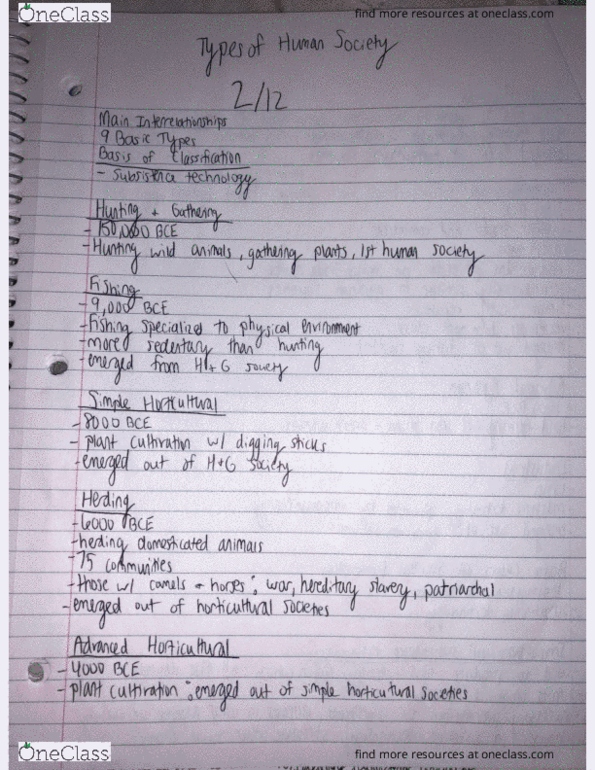 OneClass
find more resources at oneclass.com
Types of Human Society
2/12
Main Interrelationships
9 Basic Types
Basis of Classification
- Subsistence technology
Hunting + Gathering
- 150,000 BCE
- Hunting wild animals, gathering plants, 1st human society
Fishing
- 9,000 BCE
- fishing specialized to physical environment
- more sedentary than hunting
- emerged from H+G society
Simple Horticultural
- 8000 BCE
- plant cultivation w/ digging sticks
- emerged out of H+G society
Herding
- 6000 BCE
- herding domesticated animals
- 75 communities
- those w/ camels + horses: war, hereditary slavery, patriarchal
- emerged out of horticultural societies
Advanced Horticultural
- 4000 BCE
- plant cultivation; emerged out of simple horticultural societies
OneClass
find more resources at oneclass.com